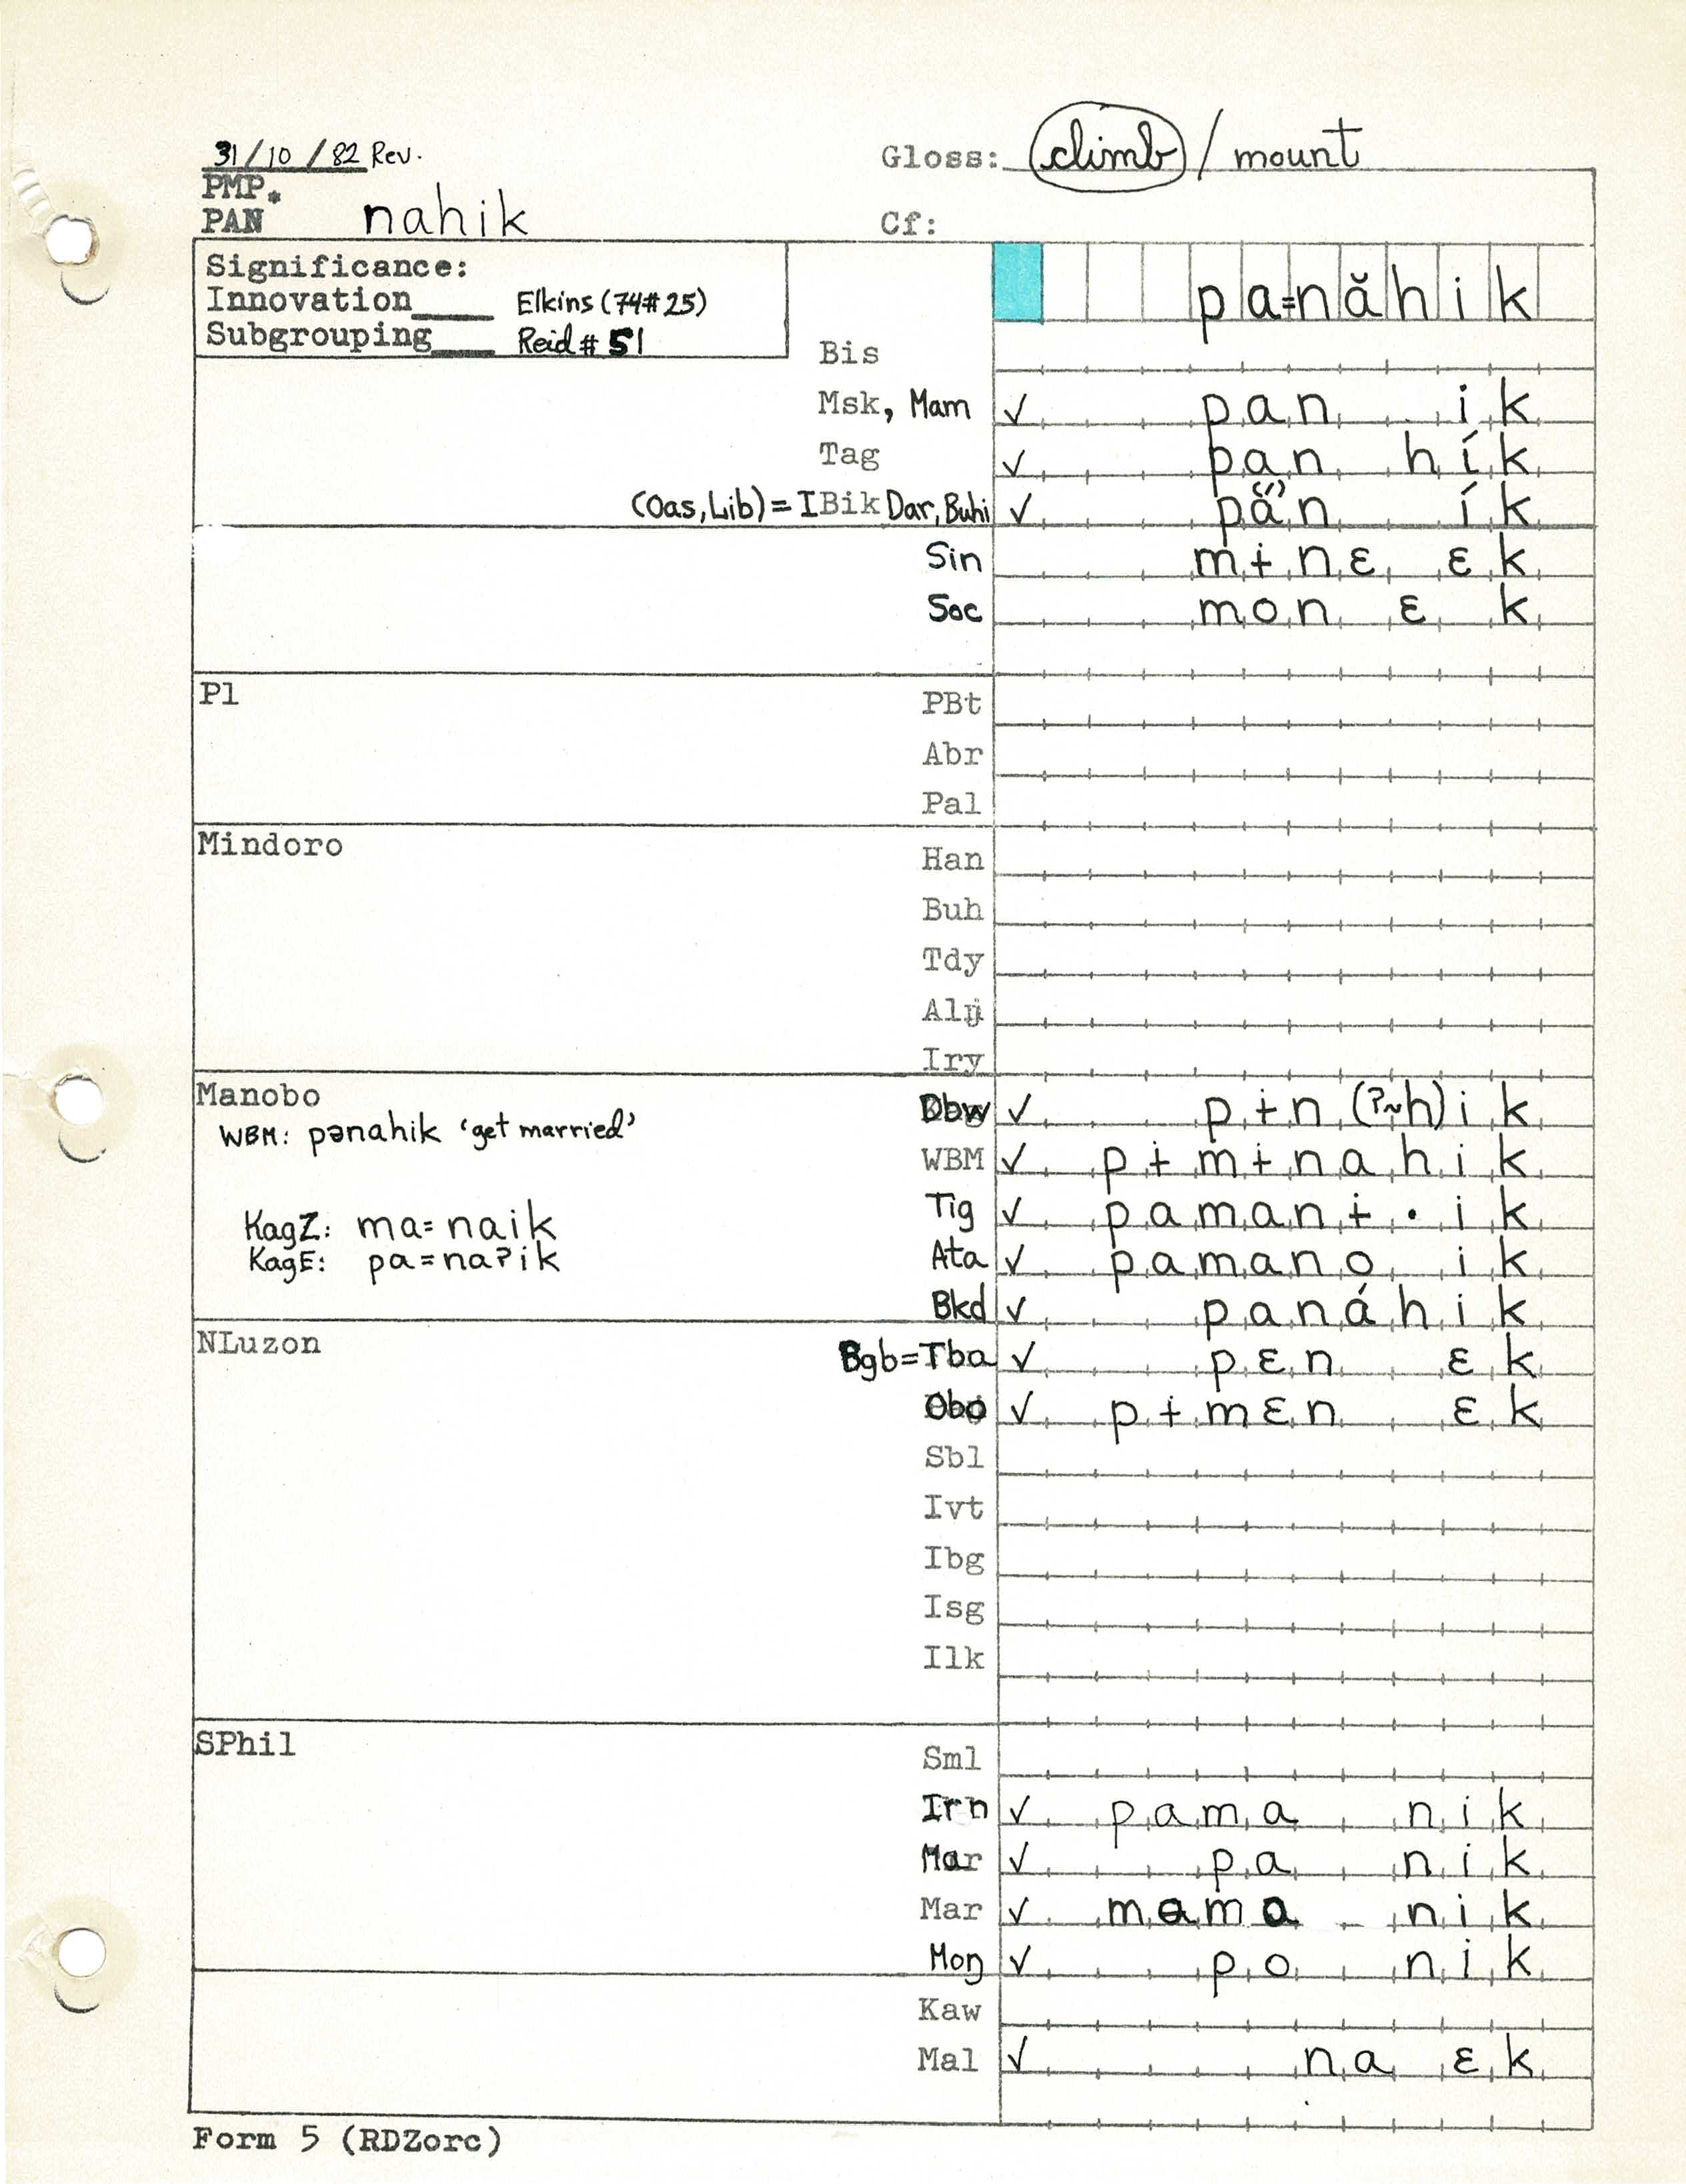 31/10/82 Rev.
Gloss: climb / mount
PMP*
PAN nahik
Cf:
Significance:
Innovation____ Elkins (74#25)
Subgrouping____ Reid # 51
pa=năhik
Bis
Msk, Mam ✓ pan ik
Tag ✓ pan hík
(Oas, Lib) = IBik Dar, Buhi ✓ pa(´)n ík
Sin mɨnɛ ɛk
Soc mon ɛ k
Pl
PBt
Abr
Pal
Mindoro
Han
Buh
Tdy
Iry
Manobo
WBM: pənahik ‘get married’
KagZ: ma=naik
KagE: pa=naʔik
Dbw ✓ pɨn(ʔ~h)ik
WBM ✓ pɨmɨnahik
Tig ✓ pamanɨ·ik
Ata ✓ pamano ik
Bkd ✓ panáhik
NLuzon
Bgb=Tba ✓ pɛn ɛk
Obo ✓ pɨmɛn ɛk
Sbl
Ivt
Ibg
Isg
Ilk
SPhil
Sml
Irn ✓ pama nik
Mar ✓ pa nik
Mar ✓ mama nik
Mon ✓ po nik
Kaw
Mal ✓ na ɛk
Form 5 (RDZorc)